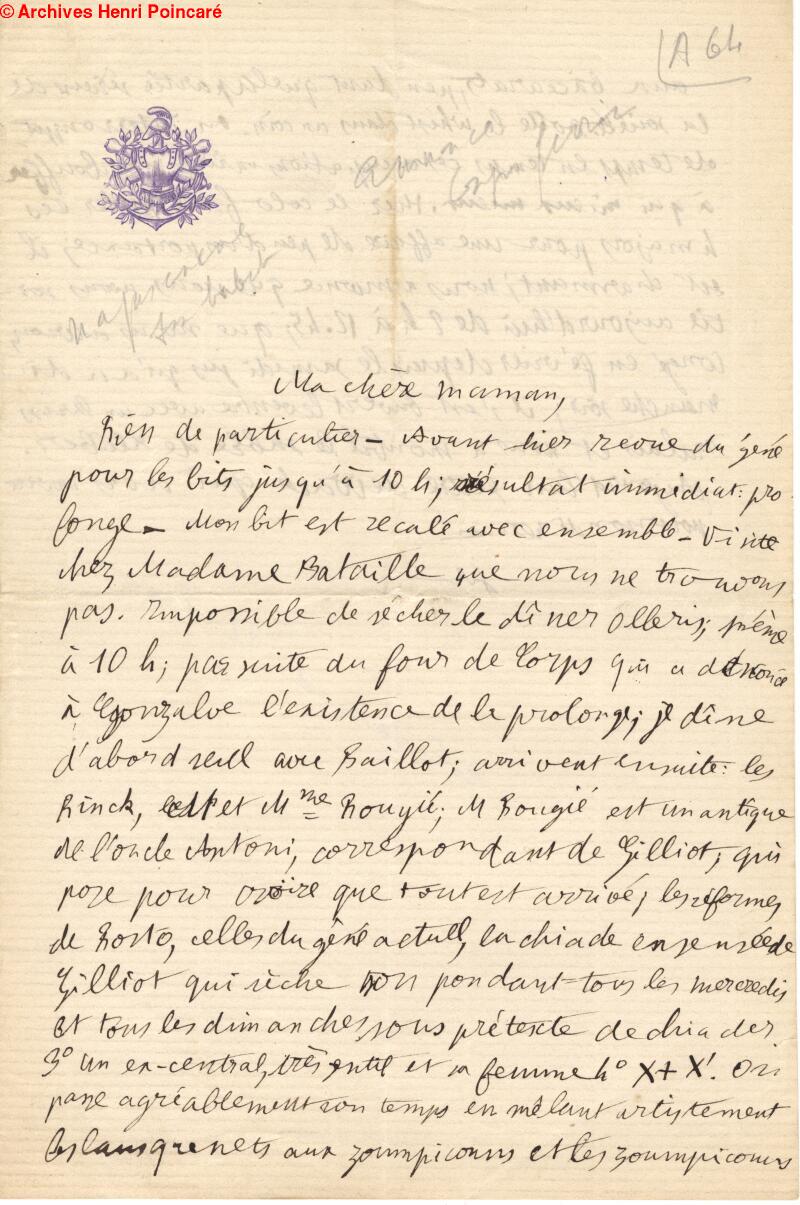 © Archives Henri Poincaré
A 64
Ma chère maman,
Rien de particulier – Avant hier revue du géné
pour les bits jusqu'à 10 h; résultat immédiat: pro
longe – Mon bit est recalé avec ensemble – Visite
chez Madame Bataille que nous ne trouvons
pas. Impossible de sécher le dîner Olleris; j'émè
à 10 h; par suite du four de Corps qui a dénoncé
à Gonzalve l'existence de la prolonge; je dîne
d'abord seul avec Baillot; arrivent ensuite: les
Rinck, et Mme Rougié; M Rougié est un antique
de l'oncle Antoni, correspondant de Gilliot; qui
pose pour croire que tout est arrivé; les réformes
de Rosto, celles du géné actuel, la chiade insensée de
Gilliot qui sèche son pendant tous les mercredis
et tous les dimanches, sous prétexte de chiader.
3º un ex-central, très gentil et sa femme 4º X + X'. On
passe agréablement son temps en mêlant artistement
les lansquenets aux zoumpicours et les zoumpicours